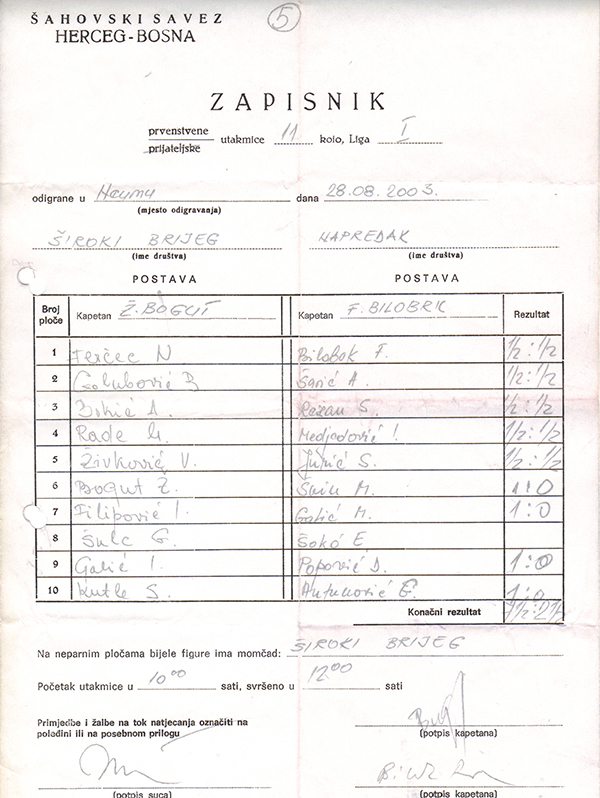 ŠAHOVSKI SAVEZ
HERCEG-BOSNA
5
ZAPISNIK
prvenstvene
prijateljske
utakmice 11 kolo, Liga I
odigrane u Neumu dana 28.08.2003.
(mjesto odigravanja)
ŠIROKI BRIJEG NAPREDAK
(ime društva) (ime društva)
POSTAVA POSTAVA
Broj ploče Kapetan Ž. BOGUT Kapetan F. BILOBRK Rezultat
1 Ferčec N Bilobrk F. 1/2 : 1/2
2 Golubović B Šarić A. 1/2 : 1/2
3 Brkić A. Režan S. 1/2 : 1/2
4 Rade M. Medjedović I. 1/2 : 1/2
5 Živković V. Jukić S. 1/2 : 1/2
6 Bogut Ž. M. 1:0
7 Filipović I. Galić M. 1:0
8 Šulc G. Šokó E
9 Galić I. Popović D. 1:0
10 Kutle S. Antunović G. 1:0
Konačni rezultat 7 1/2 : 2 1/2
Na neparnim pločama bijele figure ima momčad: ŠIROKI BRIJEG
Početak utakmice u 10 00 sati, svršeno u 12 00 sati
Primjedbe i žalbe na tok natjecanja označiti na
poleđini ili na posebnom prilogu
(potpis kapetana)
(potpis suca) (potpis kapetana)